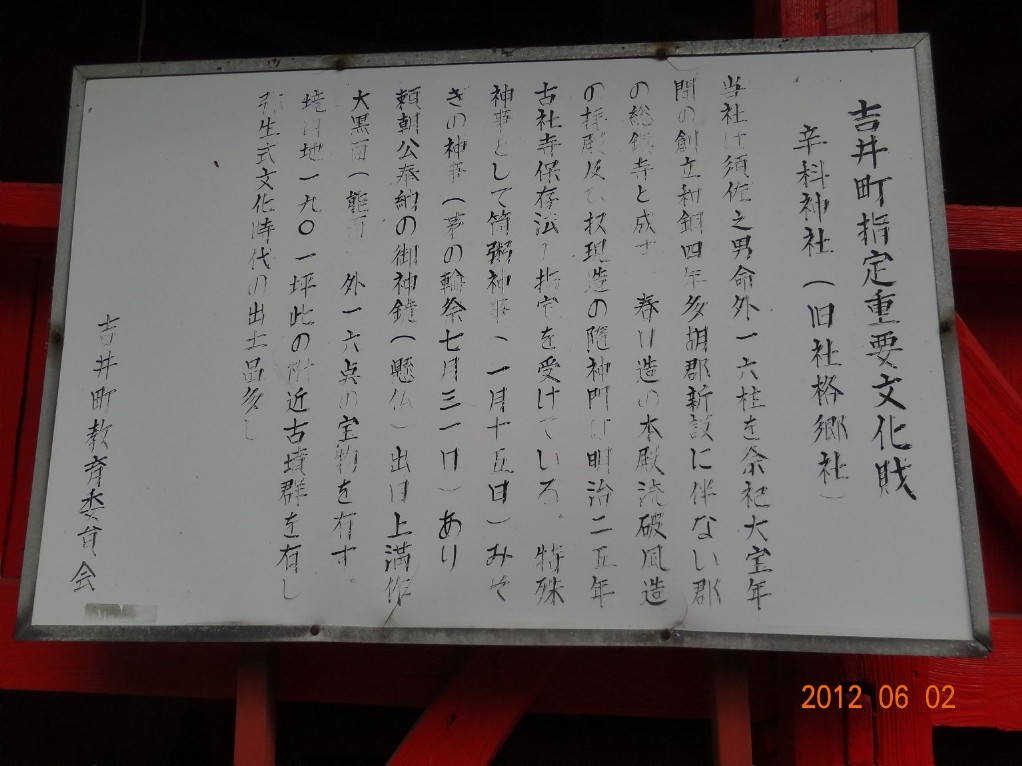 吉井町指定重要文化財
辛科神社(旧社格郷社)
当社は須佐之男命外一六柱を祭祀大宝年
間の創立和銅四年多胡郡新設に伴ない郡
の総鎮寺と成す 春日造の本殿流破風造
の拝殿及び权現造の隨神門は明治二五年
古社寺保存法の指定を受けている。特殊
神事として筒粥神事(一月十五日)みそ
ぎの神事(茅の輪祭七月三一日)あり
頼朝公奉納の御神鏡(懸仏)出目上満作
大黒面(能面 外一六点の宝物を有す。
境内地一九〇一坪此の附近古墳群を有し
弥生式文化時代の出土品多し
吉井町教育委員会
2012 06 02